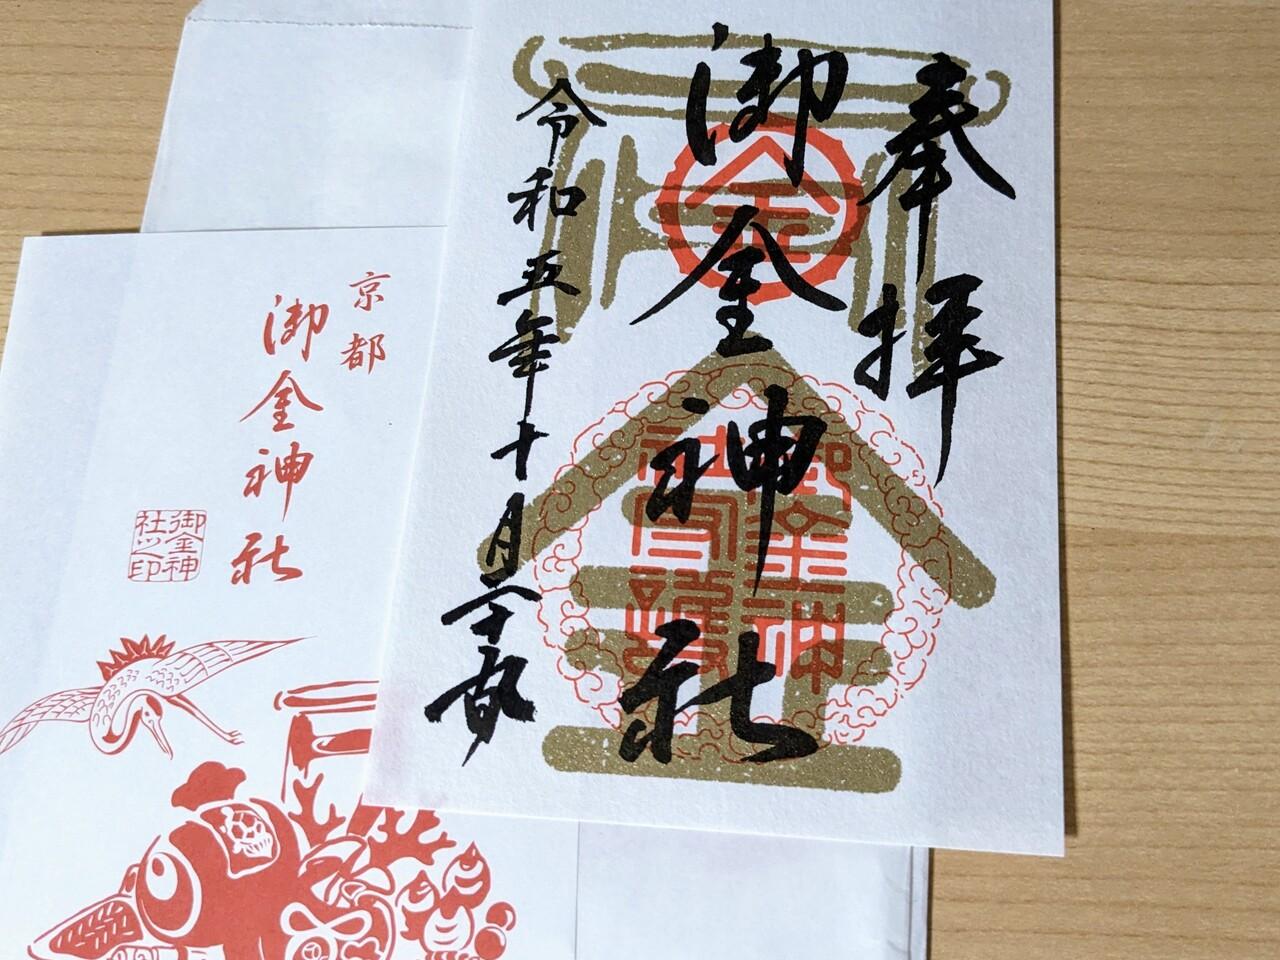 奉拝
御金神社
令和五年十月二十九日
金
御金神
社守護
京都
御金神社
御金神
社之印